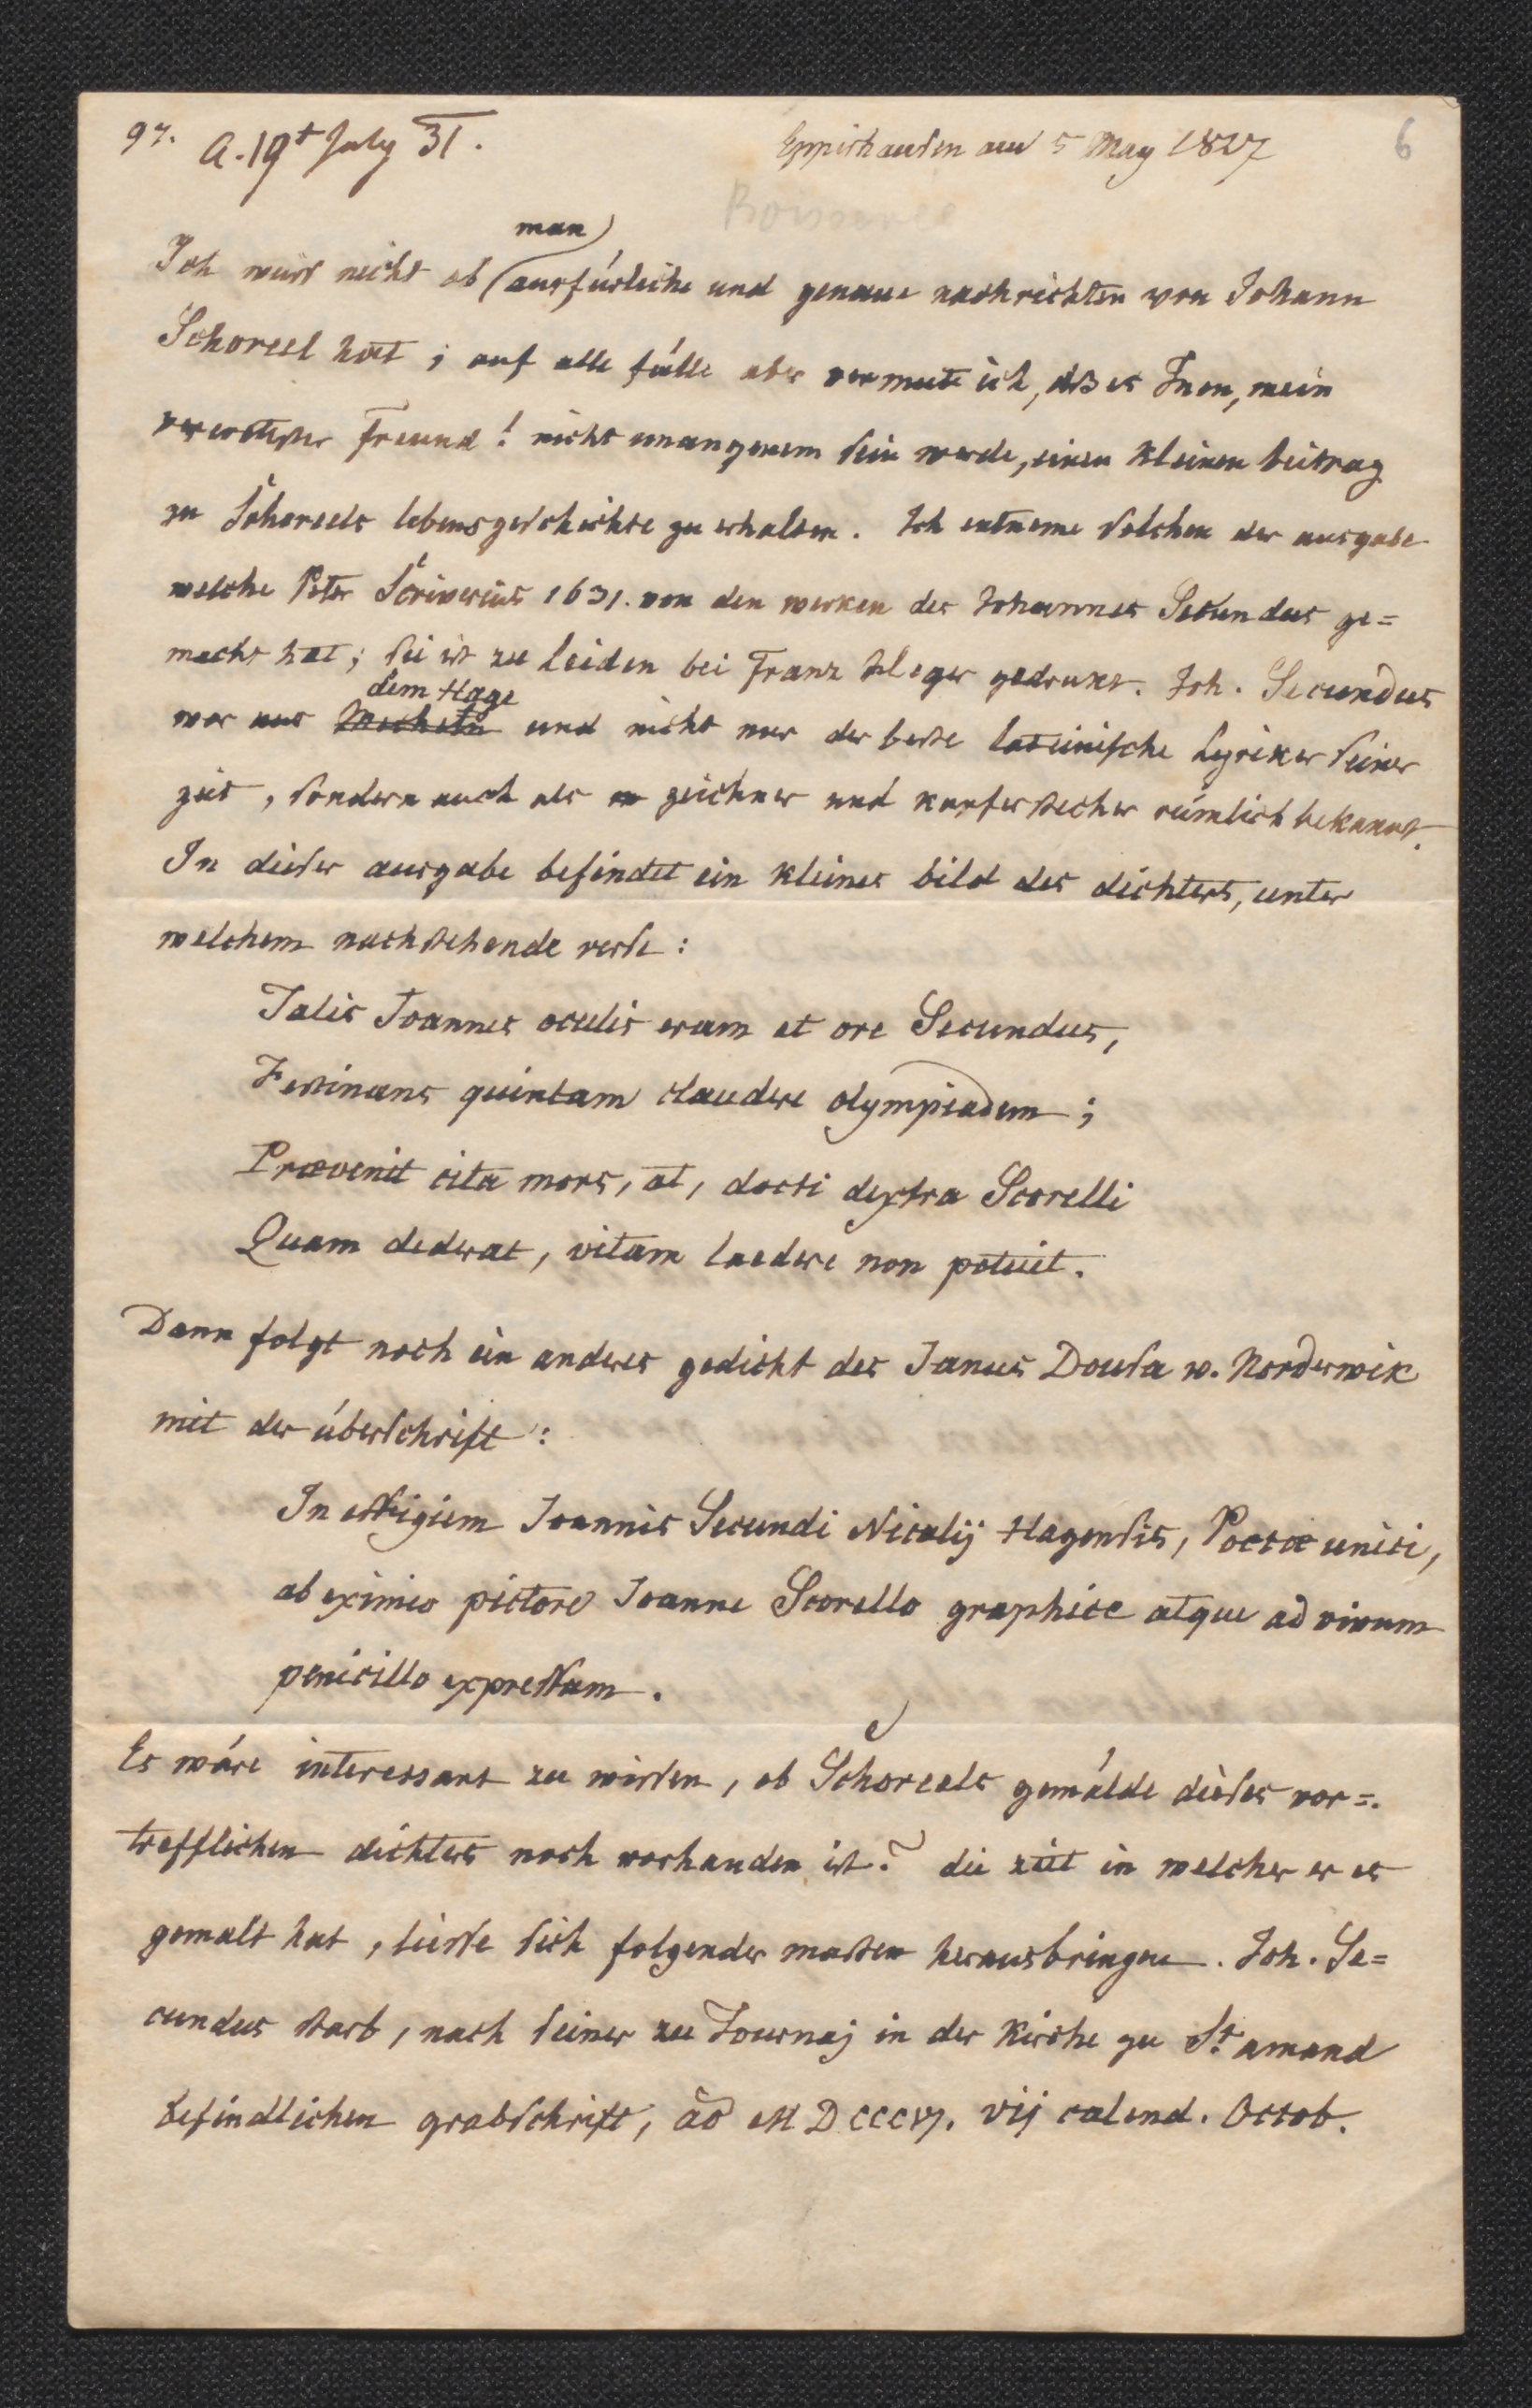 97. A. 19t July 31.
Eppishausen am 5 May 1827
6
Boisseree
Ich weiss nicht ob man ausfürliche und genaue nachrichten von Johann
Schoreel hat; auf alle fälle aber vermute ich, dß es Inen, mein
verertester Freund! nicht unangenem sein werde, einen kleinen beitrag
zu Schoreels lebensgeschichte zu erhalten. Ich entneme solchen der ausgabe
welche Peter Scriverius 1631. von den werken des Johannes Secundus ge=
macht hat; sie ist zu Leiden bei Franz Heger gedrukt. Joh. Secundus
war aus Mecheln dem Hage und nicht nur der beste lateinische Lyriker seiner
zeit, sondern auch als zeichner und kupferstecher rümlich bekannt.
In dieser ausgabe befindet ein kleines bild des dichters, unter
welchem nachstehende verse:
Talis Joannes oculis eram et ore Secundus,
Festinans quintam claudere olympiadem;
Prævenit cita mors, at, docti dextra Scorelli
Quam dederat, vitam laedere non potuit.
Dann folgt noch ein anderes gedicht des Janus Dousa v. Norderwik
mit der überschrift:
In effigiem Joannis Secundi Nicolij Hagensis, Poetæ unici,
ab eximio pictore Joanne Scorello graphice atque ad vivum
penicillo expressam.
Es wäre interessant zu wissen, ob Schoreels gemälde dieses vor=
trefflichen dichters noch vorhanden ist? die zeit in welcher er es
gemalt hat, liesse sich folgender massen herausbringen. Joh. Se=
cundus starb, nach seiner zu Tournaj in der Kirche zu St. amand
befindlichen grabschrift, ao M D cccvj. vij calend. Octob.